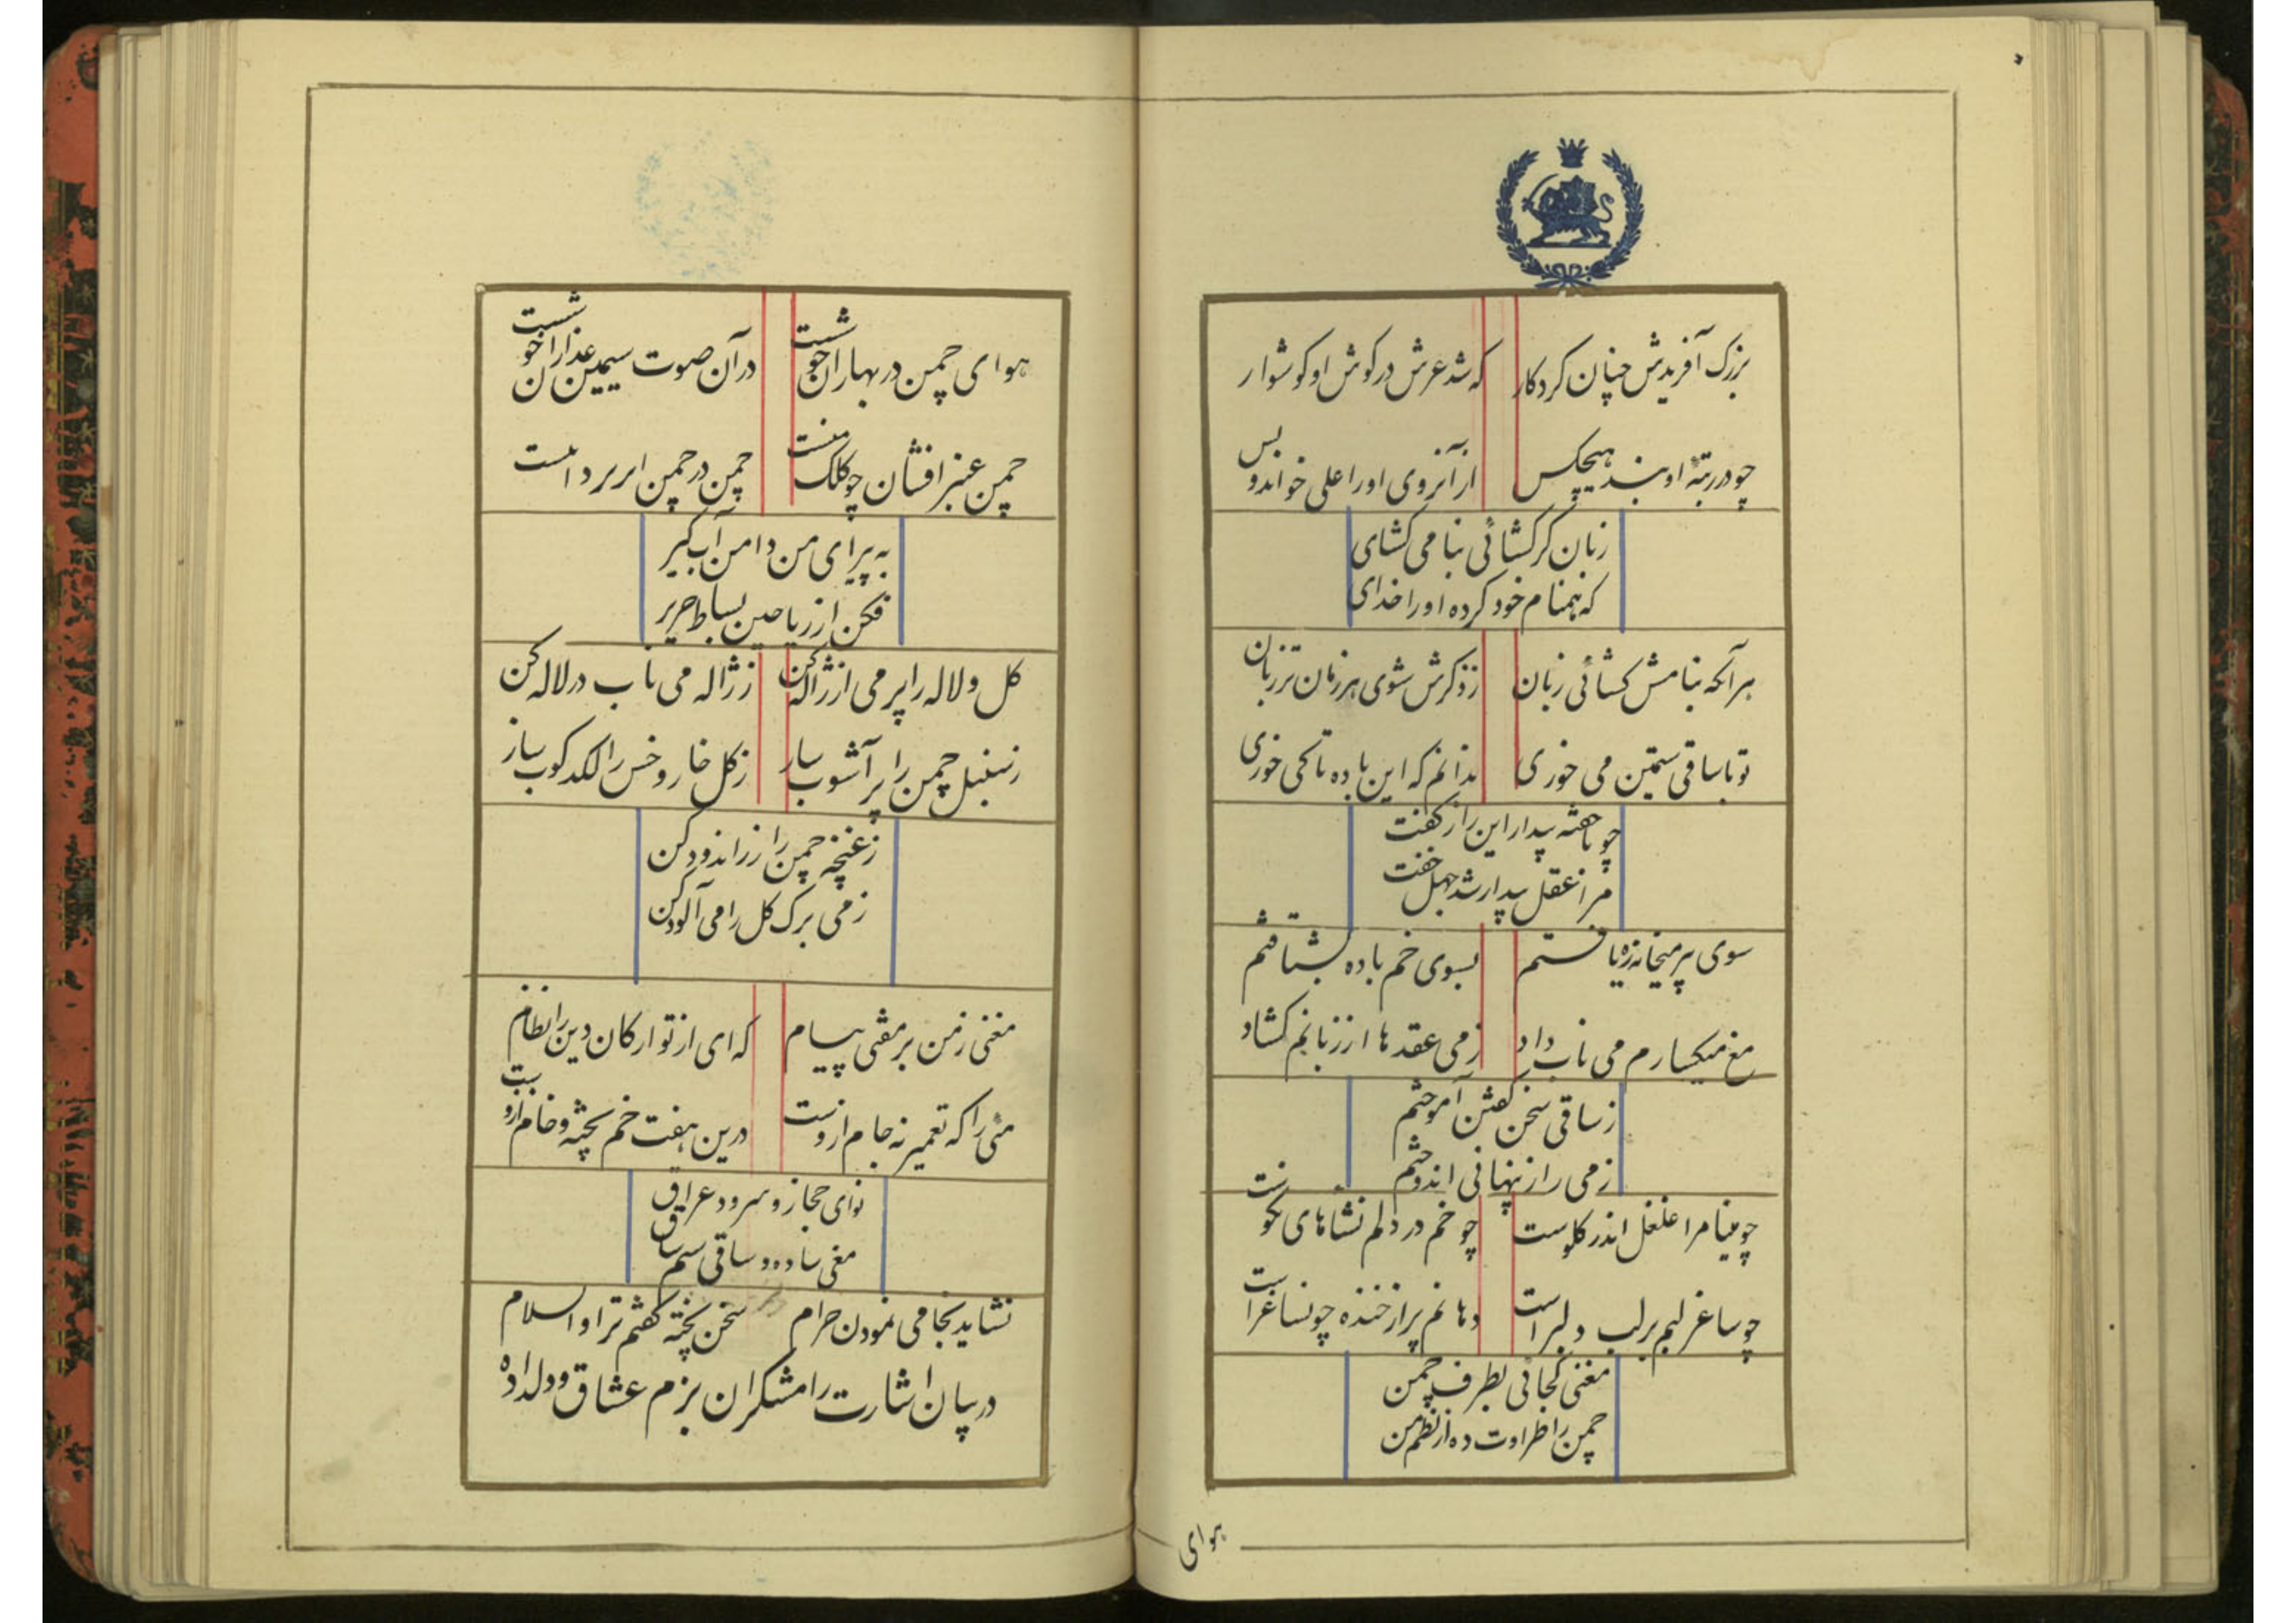 بزرک آفریدش چنان کردکار
که شد عرش در کوش او کوشوار
چو در رتبهٔ او بند هیچکس
از آنروی او را علی خواند و بس
زبان کر کشائی بنامی کشای
که همنام خود کرده او را خدای
هر آنکه بنامش کشائی زبان
ز ذکرش شوی هر زمان تر زبان
تو با ساقی ستمین می خوری
ندانم که این باده تا کی خوری
چو ناهفته بیدار این راز کفت
مرا عقل بیدار شد جهل خفت
سوی پیر میخانه ره یافتم
بسوی خم باده بشتافتم
مغ میکسارم می ناب داد
ز می عقدها از زبانم کشاد
ز ساقی سخن کفتن آموختم
ز می راز پنهانی اندوختم
چو مینا مرا غلغل اندر کلوست
چو خم در دلم نشاهای نکوست
چو ساغر لبم بر لب دلبر است
دهانم پر از خنده چون ساغر است
مغنی کجائی بطرف چمن
چمن را طراوت ده از نظم من
هوای
هوای چمن در بهاران خوشست
در آن صوت سیمین عذاران خوشست
چمن عنبر افشان چو کلک منست
چمن در چمن
به پیرای من دامن آبکیر
فکن از ریاحین بساط حریر
کل و لاله را پر می از ژاله کن
ز ژاله می ناب در لاله کن
ز سنبل چمن را پر آشوب ساز
ز کل خار و خس را لکدکوب ساز
ز غنچه چمن را زر اندود کن
ز می برک کل را می آلود کن
مغنی ز من بر مفتی پیام
که ای از تو ارکان دین را نظام
مئی را که تعمیر نه جام ازوست
درین هفت خم پخته و خام ازوست
نوای حجاز و سرود عراق
مغی ساده و ساقی سیم ساق
نشاید بخامی نمودن حرام
سخن پخته کفتم ترا والسلام
در بیان اشارت رامشکران بزم عشاق و دلداده